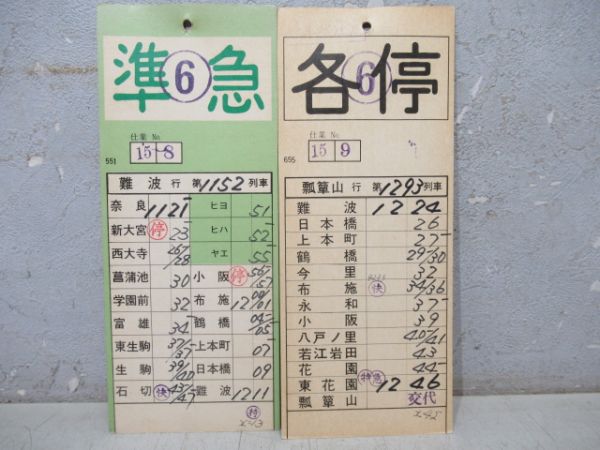 準急
6
仕業 No.
15-8
551
難波行 第1152列車
奈良 1121 ヒヨ 51
新大宮 停 23 ヒハ 52
西大寺 28 ヤエ 55
菖蒲池 30 小阪 停 57
学園前 32 布施 12 01
富雄 34 鶴橋 05
東生駒 37 上本町 07
生駒 39/40 日本橋 09
石切 快 難波 1211
各停
6
仕業 No.
15 9
655
瓢箪山行 第1293列車
難波 12 24
日本橋 26
上本町 27
鶴橋 29/30
今里 32
布施 快 34/36
永和 37
小阪 39
八戸ノ里 40/41
若江岩田 43
花園 44
東花園 特急 12 46
瓢箪山 交代